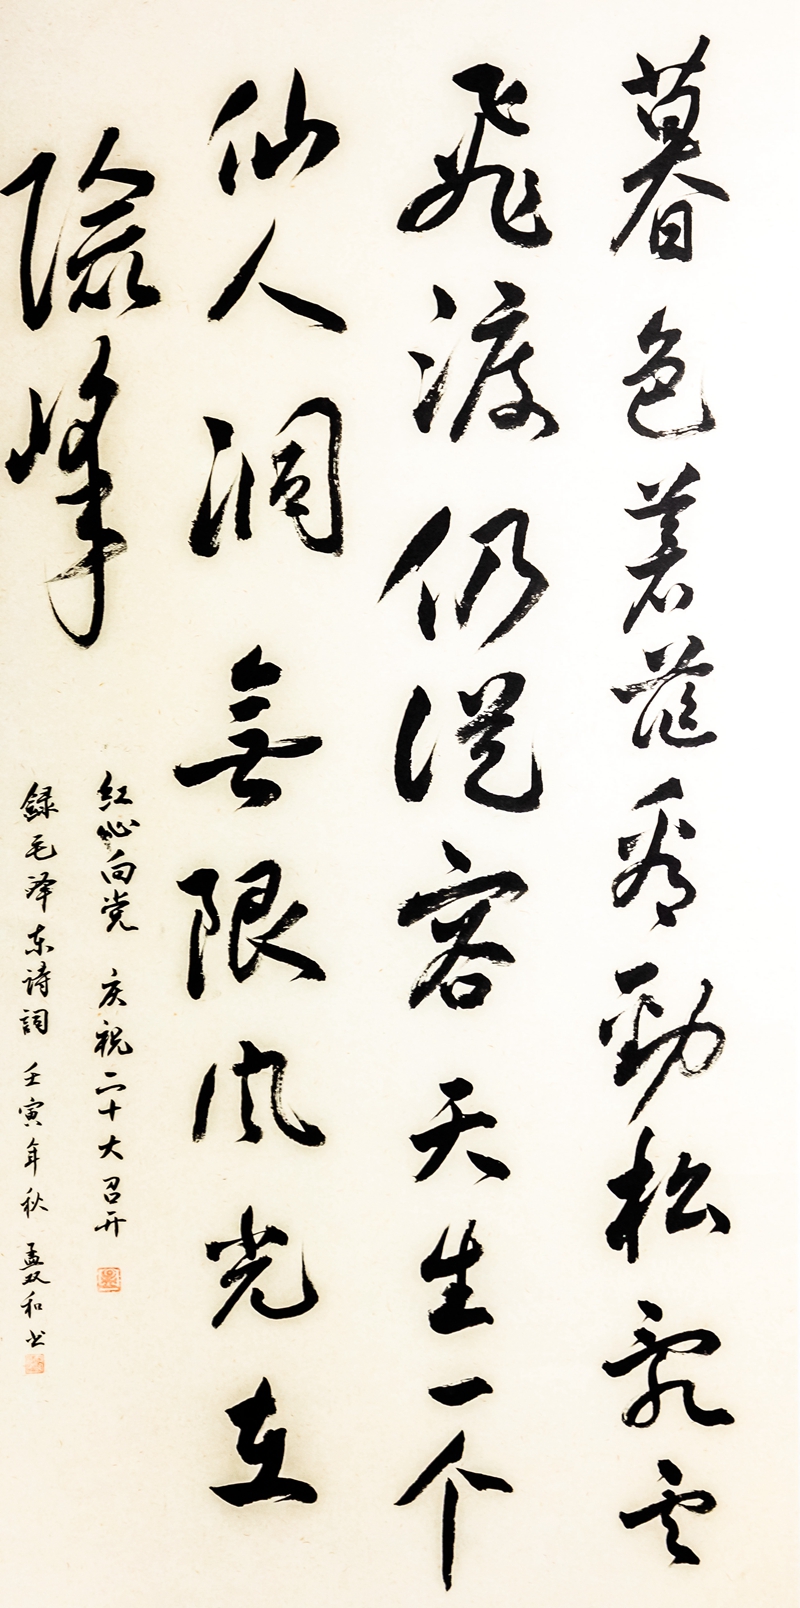 暮色蒼茫看勁松亂雲
飛渡仍從容天生一个
仙人洞無限风光在
險峰
红心向党 庆祝二十大召开
録毛泽东诗詞 壬寅年秋 孟双和书